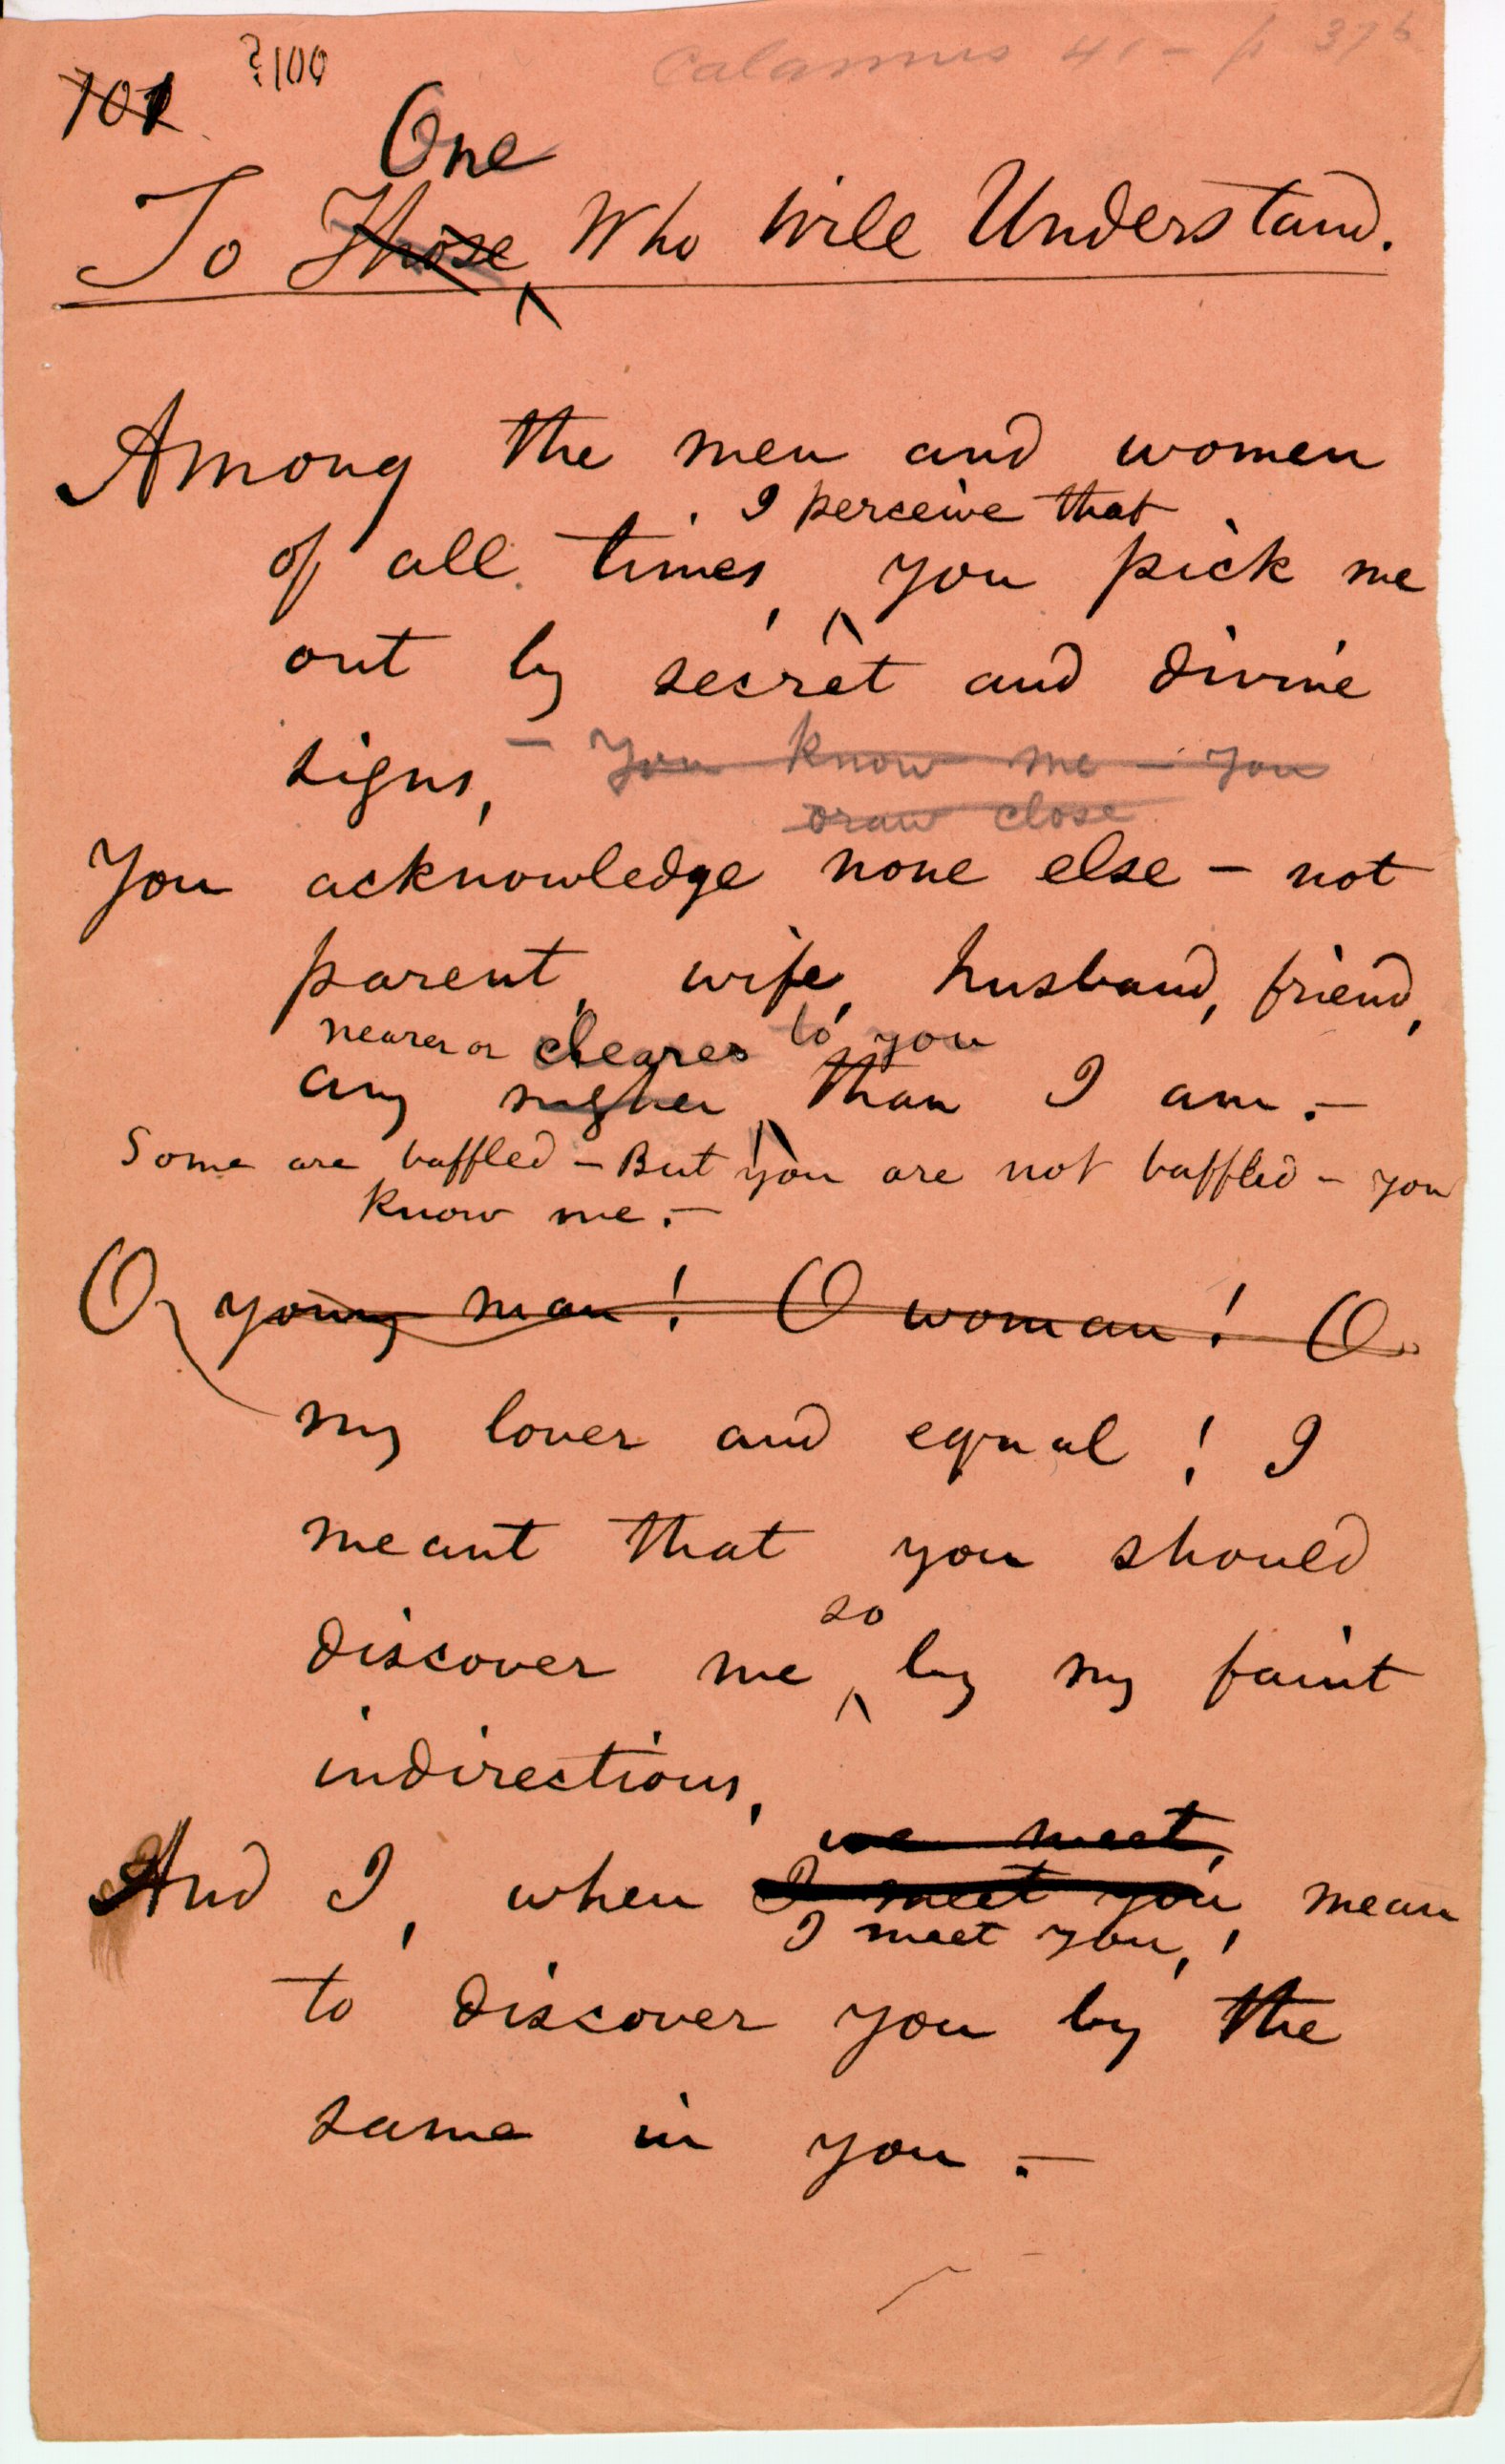 Calamus 41 - p 376
101 ?100
One
To Those Who Will Understand.
Among the men and women
I perceive that
of all times, you pick me
out by secret and divine
signs, – You know me – you
draw close
You acknowledge none else – not
parent, wife, husband, friend,
nearer or dearer to you
any nigher than I am. –
Some are baffled – But you are not baffled – you
know me. –
O young man! O woman! O
my lover and equal! I
meant that you should
so
discover me by my faint
indirections,
we meet,
And I, when I meet you mean
I meet you,
to discover you by the
same in you. –